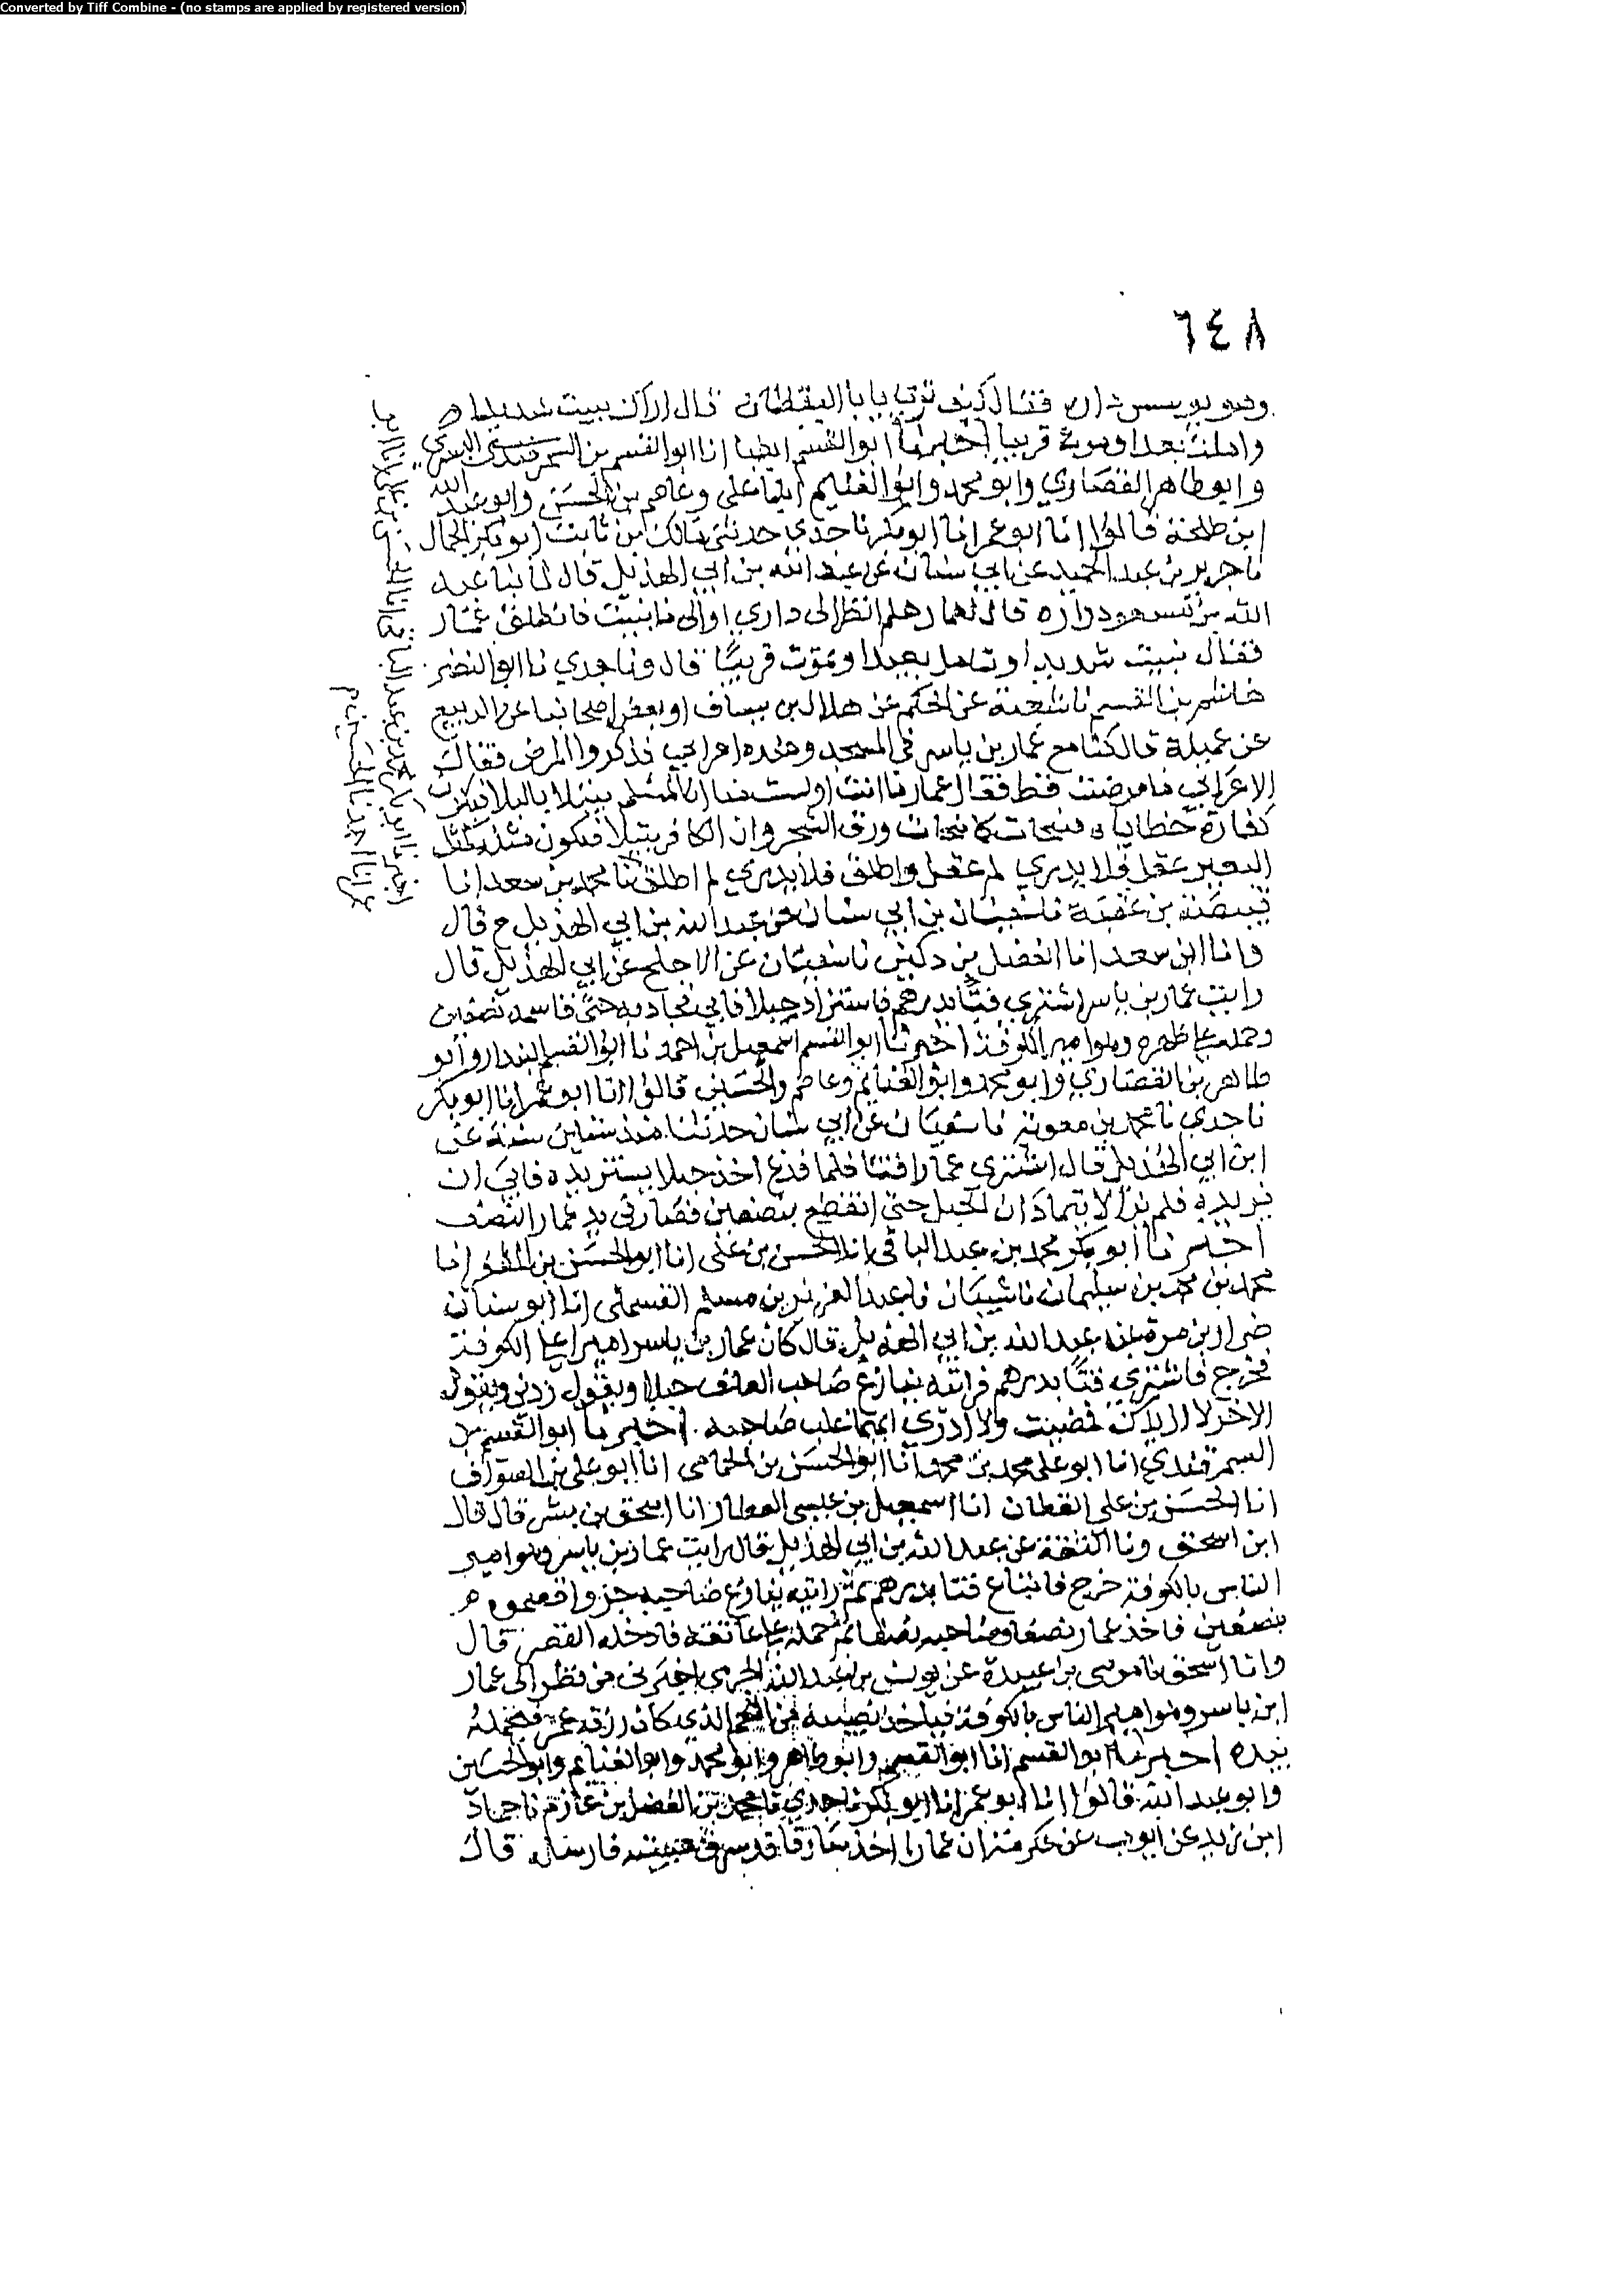 Converted by Tiff Combine - (no stamps are applied by registered version)
٦٤٨
وهو يوسس داره فقال كيف ترى يابا اليقظان قال اراك بنيت شديدا
واملت بعدا وتموت قريبا اخبرنا ابو القسم ايضا انا ابو القسم بن البسري
وابو طاهر القصاري وابو محمد وابو الغنايم ابنا على وعاصم بن الحسن وابو عبد الله
ابن طلحة قالوا انا ابو عمر انا ابو بكر نا جدي حدثني ثابت ابو بكر الجمال
نا جرير بن عبد الحميد عن ابي سنان عن عبد الله بن ابي الهذيل قال لما بنا عبد
الله بن مسعود داره قال لعمار هلم انظر الى داري او الى ما بنيت فانطلق عمار
فقال بنيت شديدا وتامل بعيدا وتموت قريبا قال ونا جدي نا ابو النضر
هاشم بن القسم نا شعبة عن الحكم عن هلال بن يساف او بعض اصحابنا عن الربيع
عن عميلة قال كنا مع عمار بن ياسر في المسجد وعنده اعرابي فذكروا المرض فقال
الاعرابي ما مرضت قط فقال عمار ما انت او لست منا ان المسلم يبتلا بالبلا فيكون
كفارة خطاياه فتحات كما تحات ورق الشجر وان الكافر يبتلا فيكون مثله كمثل
البعير عقل فلا يدري لم عقل واطلق فلا يدري لم اطلق نا محمد بن سعد انا
قبيصة بن عقبة نا سفيان بن ابي سنان عن عبد الله بن ابي الهذيل ح قال
وانا ابن سعد انا الفضل بن دكين نا سفيان عن الاجلح عن ابي الهذيل قال
رايت عمار بن ياسر اشترى قتا بدرهم فاستزاد حبلا فابي فجاذبه حتى قاسمه نصفين
وحمله على ظهره وهو امير الكوفة اخبرنا ابو القسم اسمعيل بن احمد نا ابو القسم البندار وابو
طاهر بن القصاري وابو محمد وابو الغنايم وعاصم والحسين قالوا انا ابو عمر انا ابو بكر
نا جدي نا محمد بن معوية نا سفيان عن ابي سنان حدثنا منذ ستين سنة عن
ابن ابي الهذيل قال اشترى عمار قتا فلما فرغ اخذ حبلا يستزيده فابى ان
يزيده فلم يزالا يتماذان الحبل حتى انقطع بنصفين فصار في يد عمار النصف
اخبرنا ابو بكر محمد بن عبد الباقي انا الحسن بن على انا ابو الحسن بن المظفر انا
محمد بن محمد بن سليمان نا شيبان نا عبد العزيز بن مسلم القسملى انا ابو سنان
ضرار بن مرة عن عبد الله بن ابي الهذيل قال كان عمار بن ياسر اميرا على الكوفة
فخرج فاشترى قتا بدرهم فرايته ينازع صاحب العلف حبلا ويقول زدني ويقول
الاخر لا ازيدك فمضيت ولا ادري ايهما غلب صاحبه اخبرنا ابو القسم بن
السمرقندي انا ابو على محمد بن محمد انا ابو الحسن بن الحمامى انا ابو على بن الصواف
انا الحسن بن على القطان انا اسمعيل بن عيسى العطار انا اسحق بن بشر قال قال
ابن اسحق ونا الثقة عن عبد الله بن ابي الهذيل قال رايت عمار بن ياسر وهو امير
الناس بالكوفة خرج فابتاع قتا بدرهم ثم رايته ينازع صاحبه
بنصفين فاخذ عمار نصفا وصاحبه نصفا ثم حمله على عاتقه فادخله القصر قال
وانا اسحق نا موسى بن عبيدة عن عبد الله اخبرنى من نظر الى عمار
ابن ياسر وهو امير الناس بالكوفة فياخذ نصيبه من اللحم الذي كان رزقه عمر فيحمله
بيده اخبرنا ابو القسم انا ابو القسم وابو طاهر وابو محمد وابو الغنايم وابو الحسين
وابو عبد الله قالوا انا ابو عمر انا ابو بكر نا جدي نا محمد بن الفضل بن عارم نا حماد
ابن زيد عن ايوب عن عكرمة ان عمارا اخذ سارقا قد سرق عيبته فارسله قال